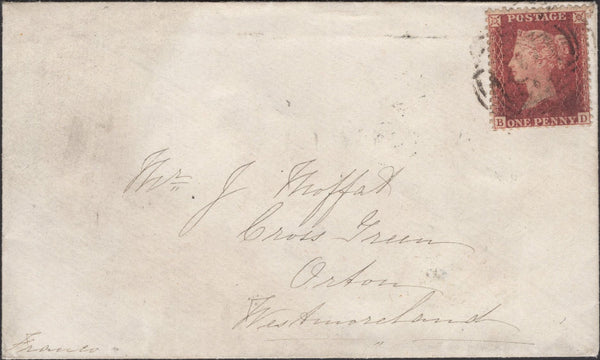 POSTAGE
B ONE PENNY D
Mr. J Moffat
Cross Green
Orton
Westmoreland
Franco